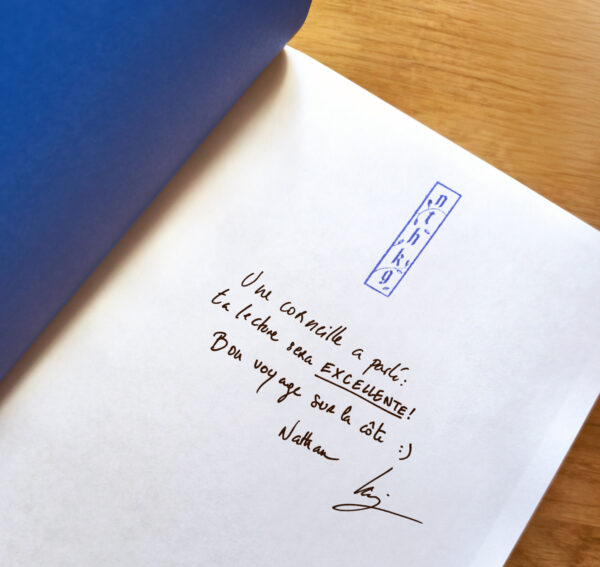 nthkg
Une corneille a parlé :
ta lecture sera EXCELLENTE !
Bon voyage sur la côte :)
Nathan